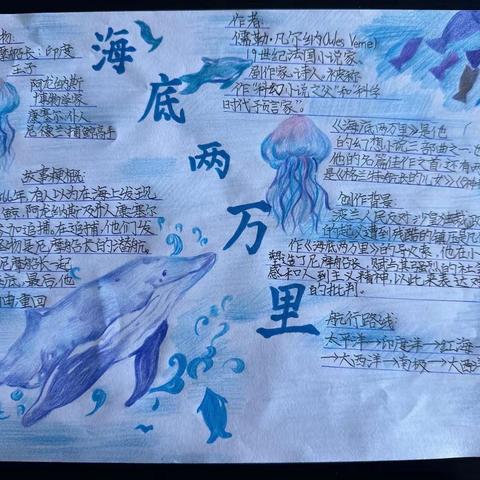 海底两万里
物:
摩船长:印度
王子
阿龙纳斯
博物学家
康塞尔仆人
尼德兰捕鲸高手
故事梗概:
66年,有人以为在海上发现
鲸,阿龙纳斯及仆人康塞尔
参加追捕,在追捕,他们发
怪物是尼摩船长的潜艇。
尼摩船长一起
底,最后,他
自由重回
作者:
儒勒·凡尔纳(Jules Verne)
19世纪法国小说家、
剧作家、诗人,被称
作“科幻小说之父”和“科学
时代预言家”。
《海底两万里》是他
的幻想小说三部曲之一,也
他的名篇佳作之首,还有两
是《格兰特船长的儿女》《神秘
创作背景:
波兰人民反对沙皇独裁
的起义遭到残酷的镇压是
作《海底两万里》的导火索,他在小
塑造了尼摩船长,赋予其强烈的社会
感和人道主义精神,以此来表达对
的批判。
航行路线:
太平洋→印度洋→红海→
→大西洋→南极→大西洋